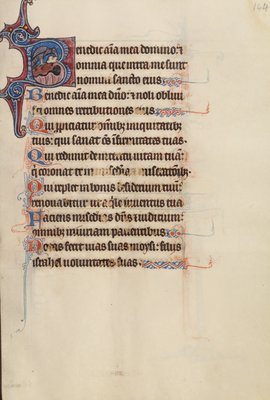 144
Benedic aīa mea domino: ⁊
omnia que intra me sunt
nomini sancto eius.
Benedic aīa mea dn̄o: ⁊ noli obliui
sci omnes retributiones eius.
Qui propiciatur omnibȝ iniquitatibȝ
tuis: qui sanat om̄s infirmitates tuas.
Qui redimit de interitu uitam tuā:
qui coronat te in mīa ⁊ miserationibȝ.
Qui replet in bonis desiderium tuū:
renouabitur ut aq̄le iuuentus tua
Faciens misericordias dn̄s ⁊ iudicium:
omnibȝ iniuriam pacientibus.
Notas fecit uias suas moysi: filiis
israhel uoluntates suas.